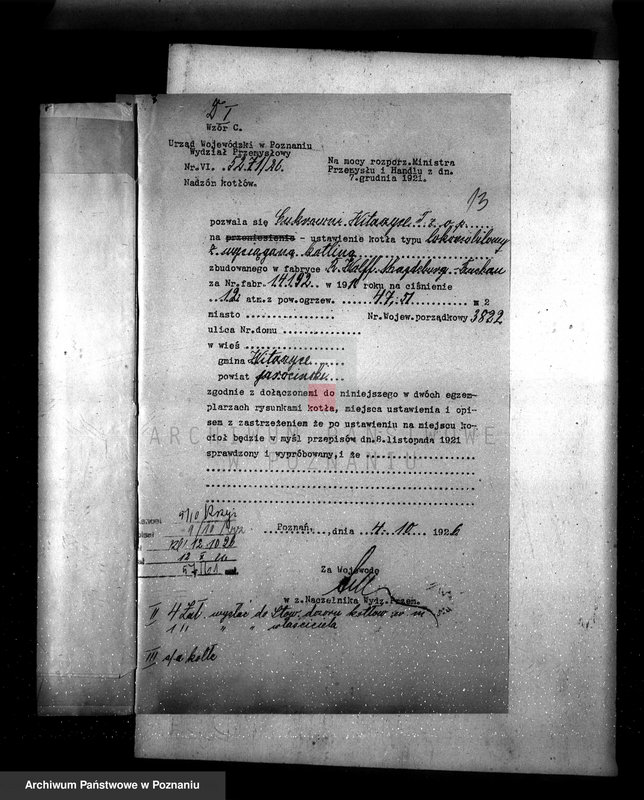 D I
Wzór C.
Urząd Wojewódzki w Poznaniu
Wydział Przemysłowy
Nr.VI. /26.
Nadzór kotłów.
Na mocy rozporz.Ministra
Przemysłu i Handlu z dn.
7.grudnia 1921.
13
pozwala się Cukrowni Witaszyce T. z o. p.
na przeniesienie - ustawienie kotła typu lokomobilowy
z wyciąganą
zbudowanego w fabryce R. Wolff. Magdeburg-Buckau
za Nr.fabr. 14192 w 19 roku na ciśnienie
12 atn.z pow.ogrzew. 47.51 m 2
miasto Nr.Wojew.porządkowy 3822
ulica Nr.domu
w wieś
gmina Witaszyce
powiat jarociński
zgodnie z dołączonemi do niniejszego w dwóch egzem-
plarzach rysunkami kotła, miejsca ustawienia i opi-
sem z zastrzeżeniem że po ustawieniu na miejscu ko-
cioł będzie w myśl przepisów dn.8.listopada 1921
sprawdzony i wypróbowany,i że
ARCHIWUM PAŃSTWOWE
W POZNANIU
Poznań, dnia 4.10 1926
5/10
12 10 26
Za Wojewodę
w z.Naczelnika Wydz.Przem.
II 4 Zał. wysłać do Stow. dozoru kotłów w m
1 " " " właściciela
III a/a kotła
Archiwum Państwowe w Poznaniu